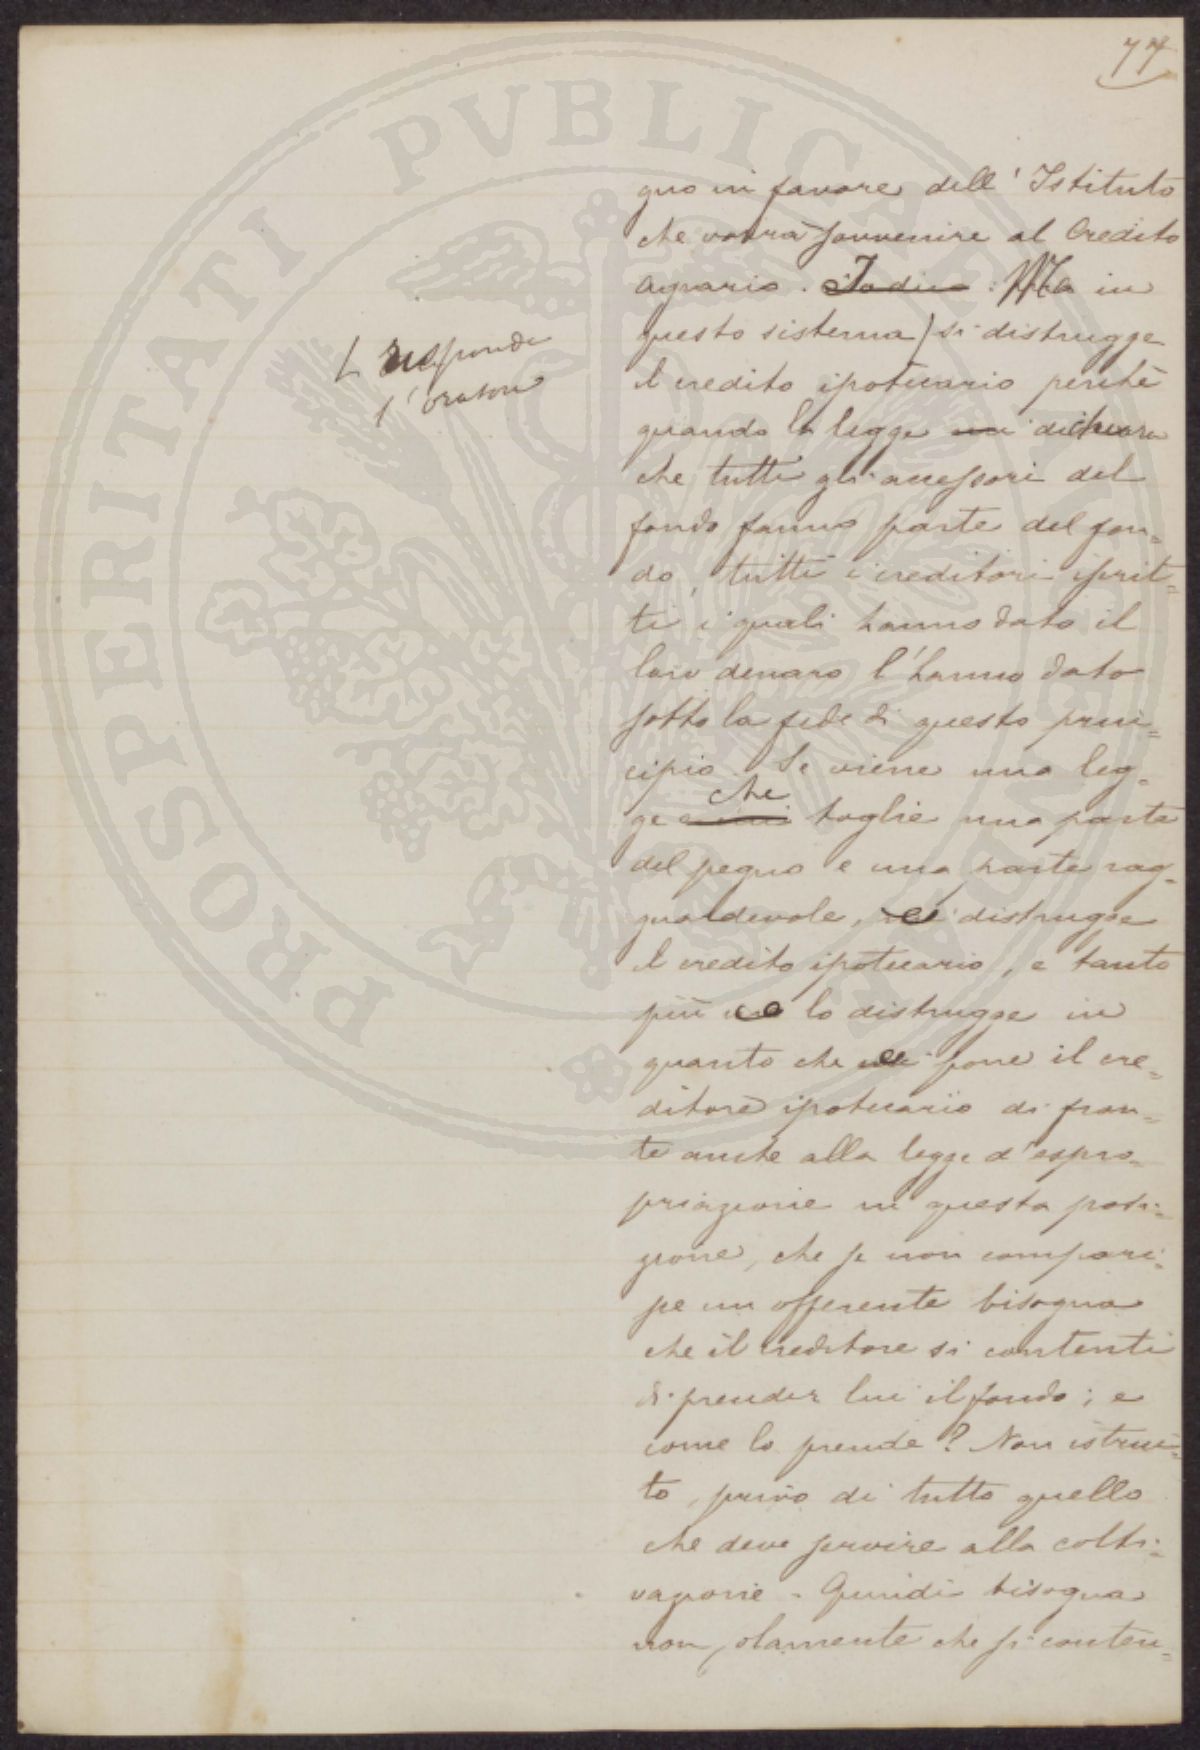 77
gno in favore dell'Istituto
che vorrà sovvenire al Credito
agrario. Io dico: Ma in
questo sistema si distrugge
il credito ipotecario perchè
quando la legge dichiara
che tutti gli accessori del
fondo fanno parte del fon=
do, tutti i creditori iscrit=
ti i quali hanno dato il
loro denaro l'hanno dato
sotto la fede di questo prin=
cipio. Se viene una leg=
ge che toglie una parte
del pegno e una parte rag=
guardevole, si distrugge
il credito ipotecario, e tanto
più lo distrugge in
quanto che pone il cre=
ditore ipotecario di fron=
te anche alla legge d'espro=
priazione in questa posi=
zione, che se non compari=
sse un offerente bisogna
che il creditore si contenti
di prender lui il fondo; e
come lo prende? Non istrui=
to, privo di tutto quello
che deve servire alla colti=
vazione - Quindi bisogna
non solamente che si conten=
L risponde
l'oratore
PROSPERITATI PVBLICAE